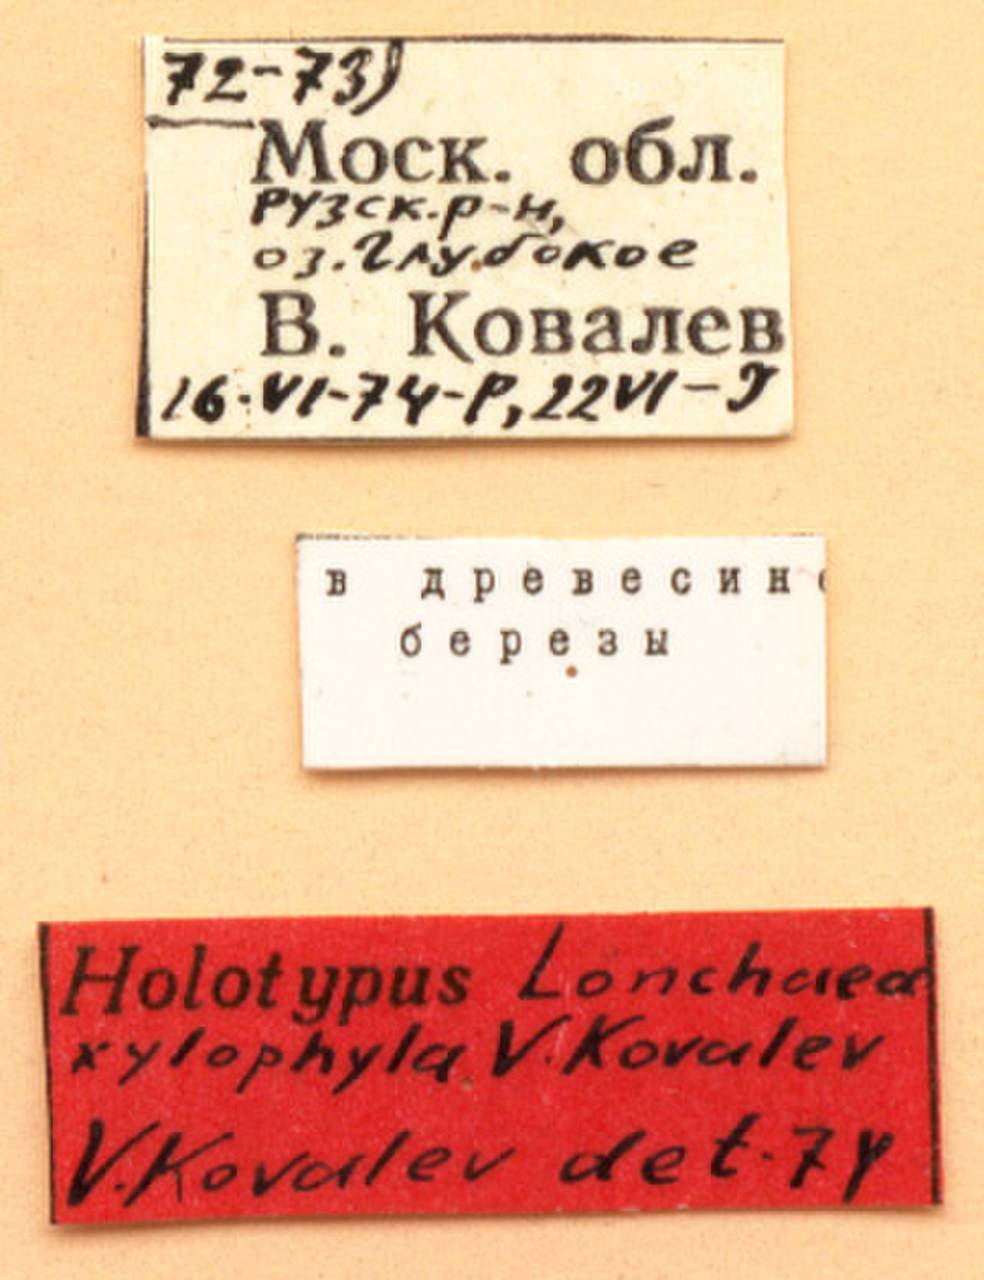 72-73)
Моск. обл.
Рузск. р-н,
оз. Глубокое
В. Ковалев
16·VI-74-P, 22VI-J
в древесине
березы
Holotypus Lonchaea
xylophyla V. Kovalev
V. Kovalev det. 74